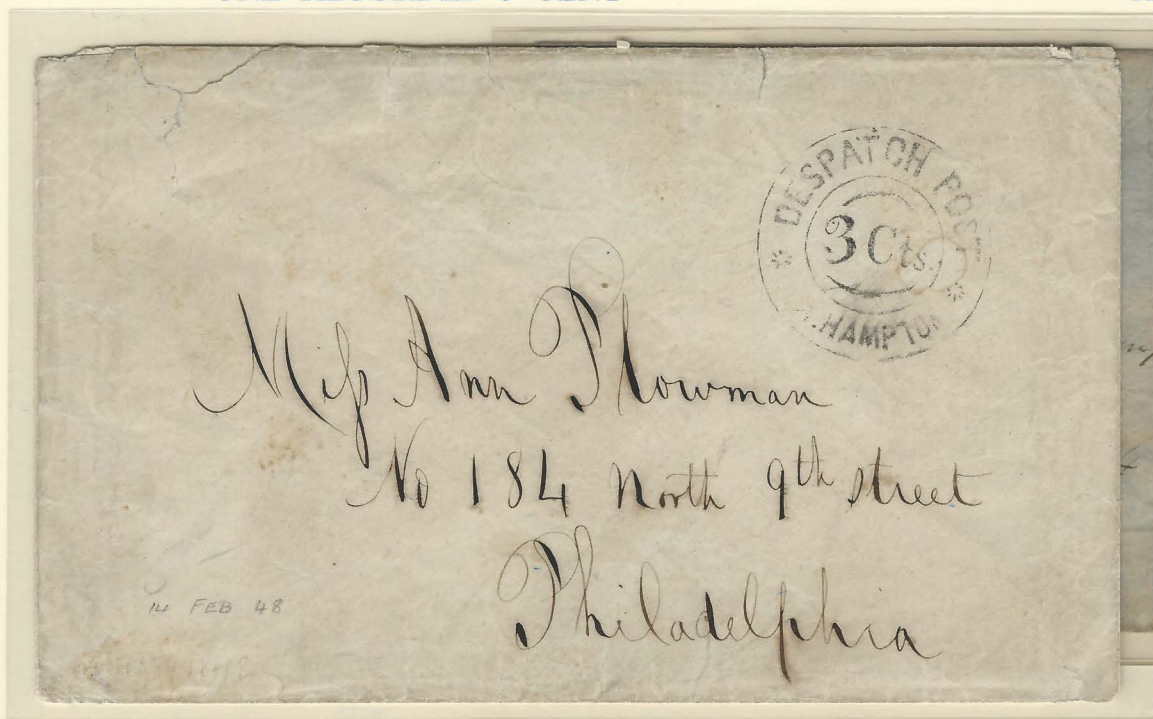 DESPATCH POST
3 Cts.
.HAMPTON
Miſs Ann Plowman
No 184 North 9th street
Philadelphia
14 FEB 48